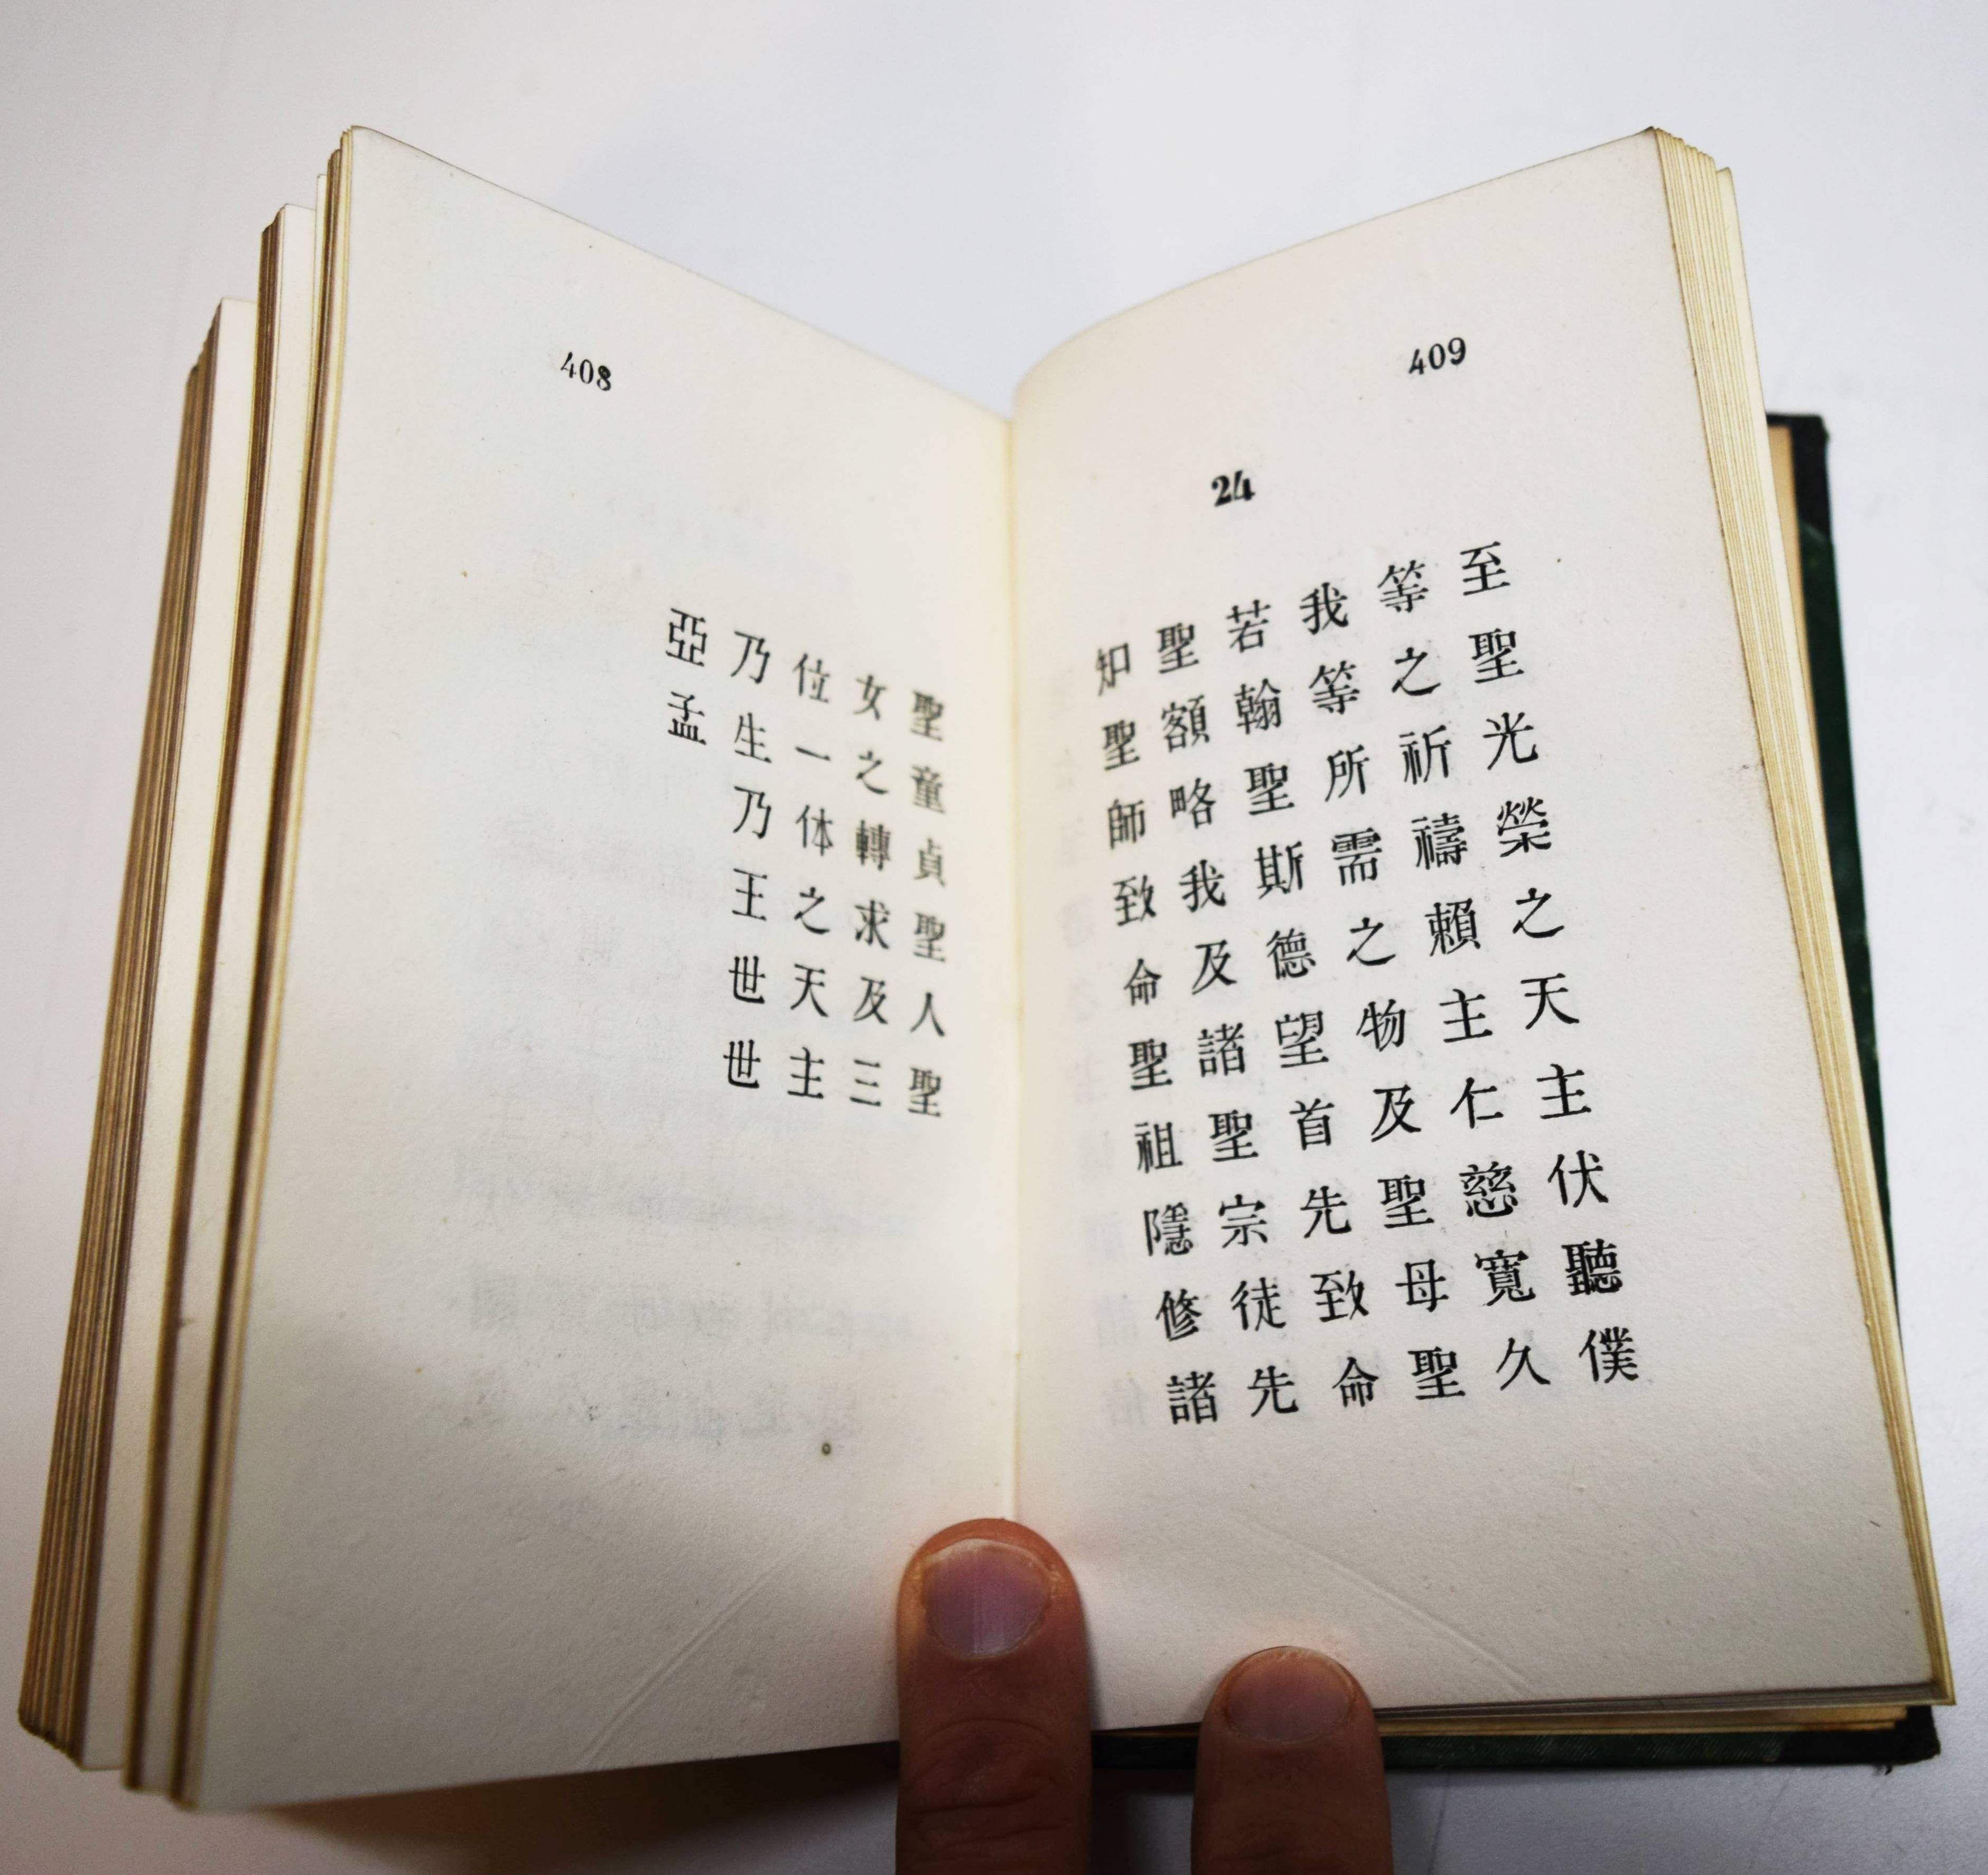 409
24
至聖光榮之天主伏聽僕
等之祈禱賴主仁慈寬久
我等所需之物及聖母聖
若翰聖斯德望首先致命
聖額略我及諸聖宗徒先
知聖師致命聖祖隱修諸
408
聖童貞聖人聖
女之轉求及三
位一体之天主
乃生乃王世世
亞孟